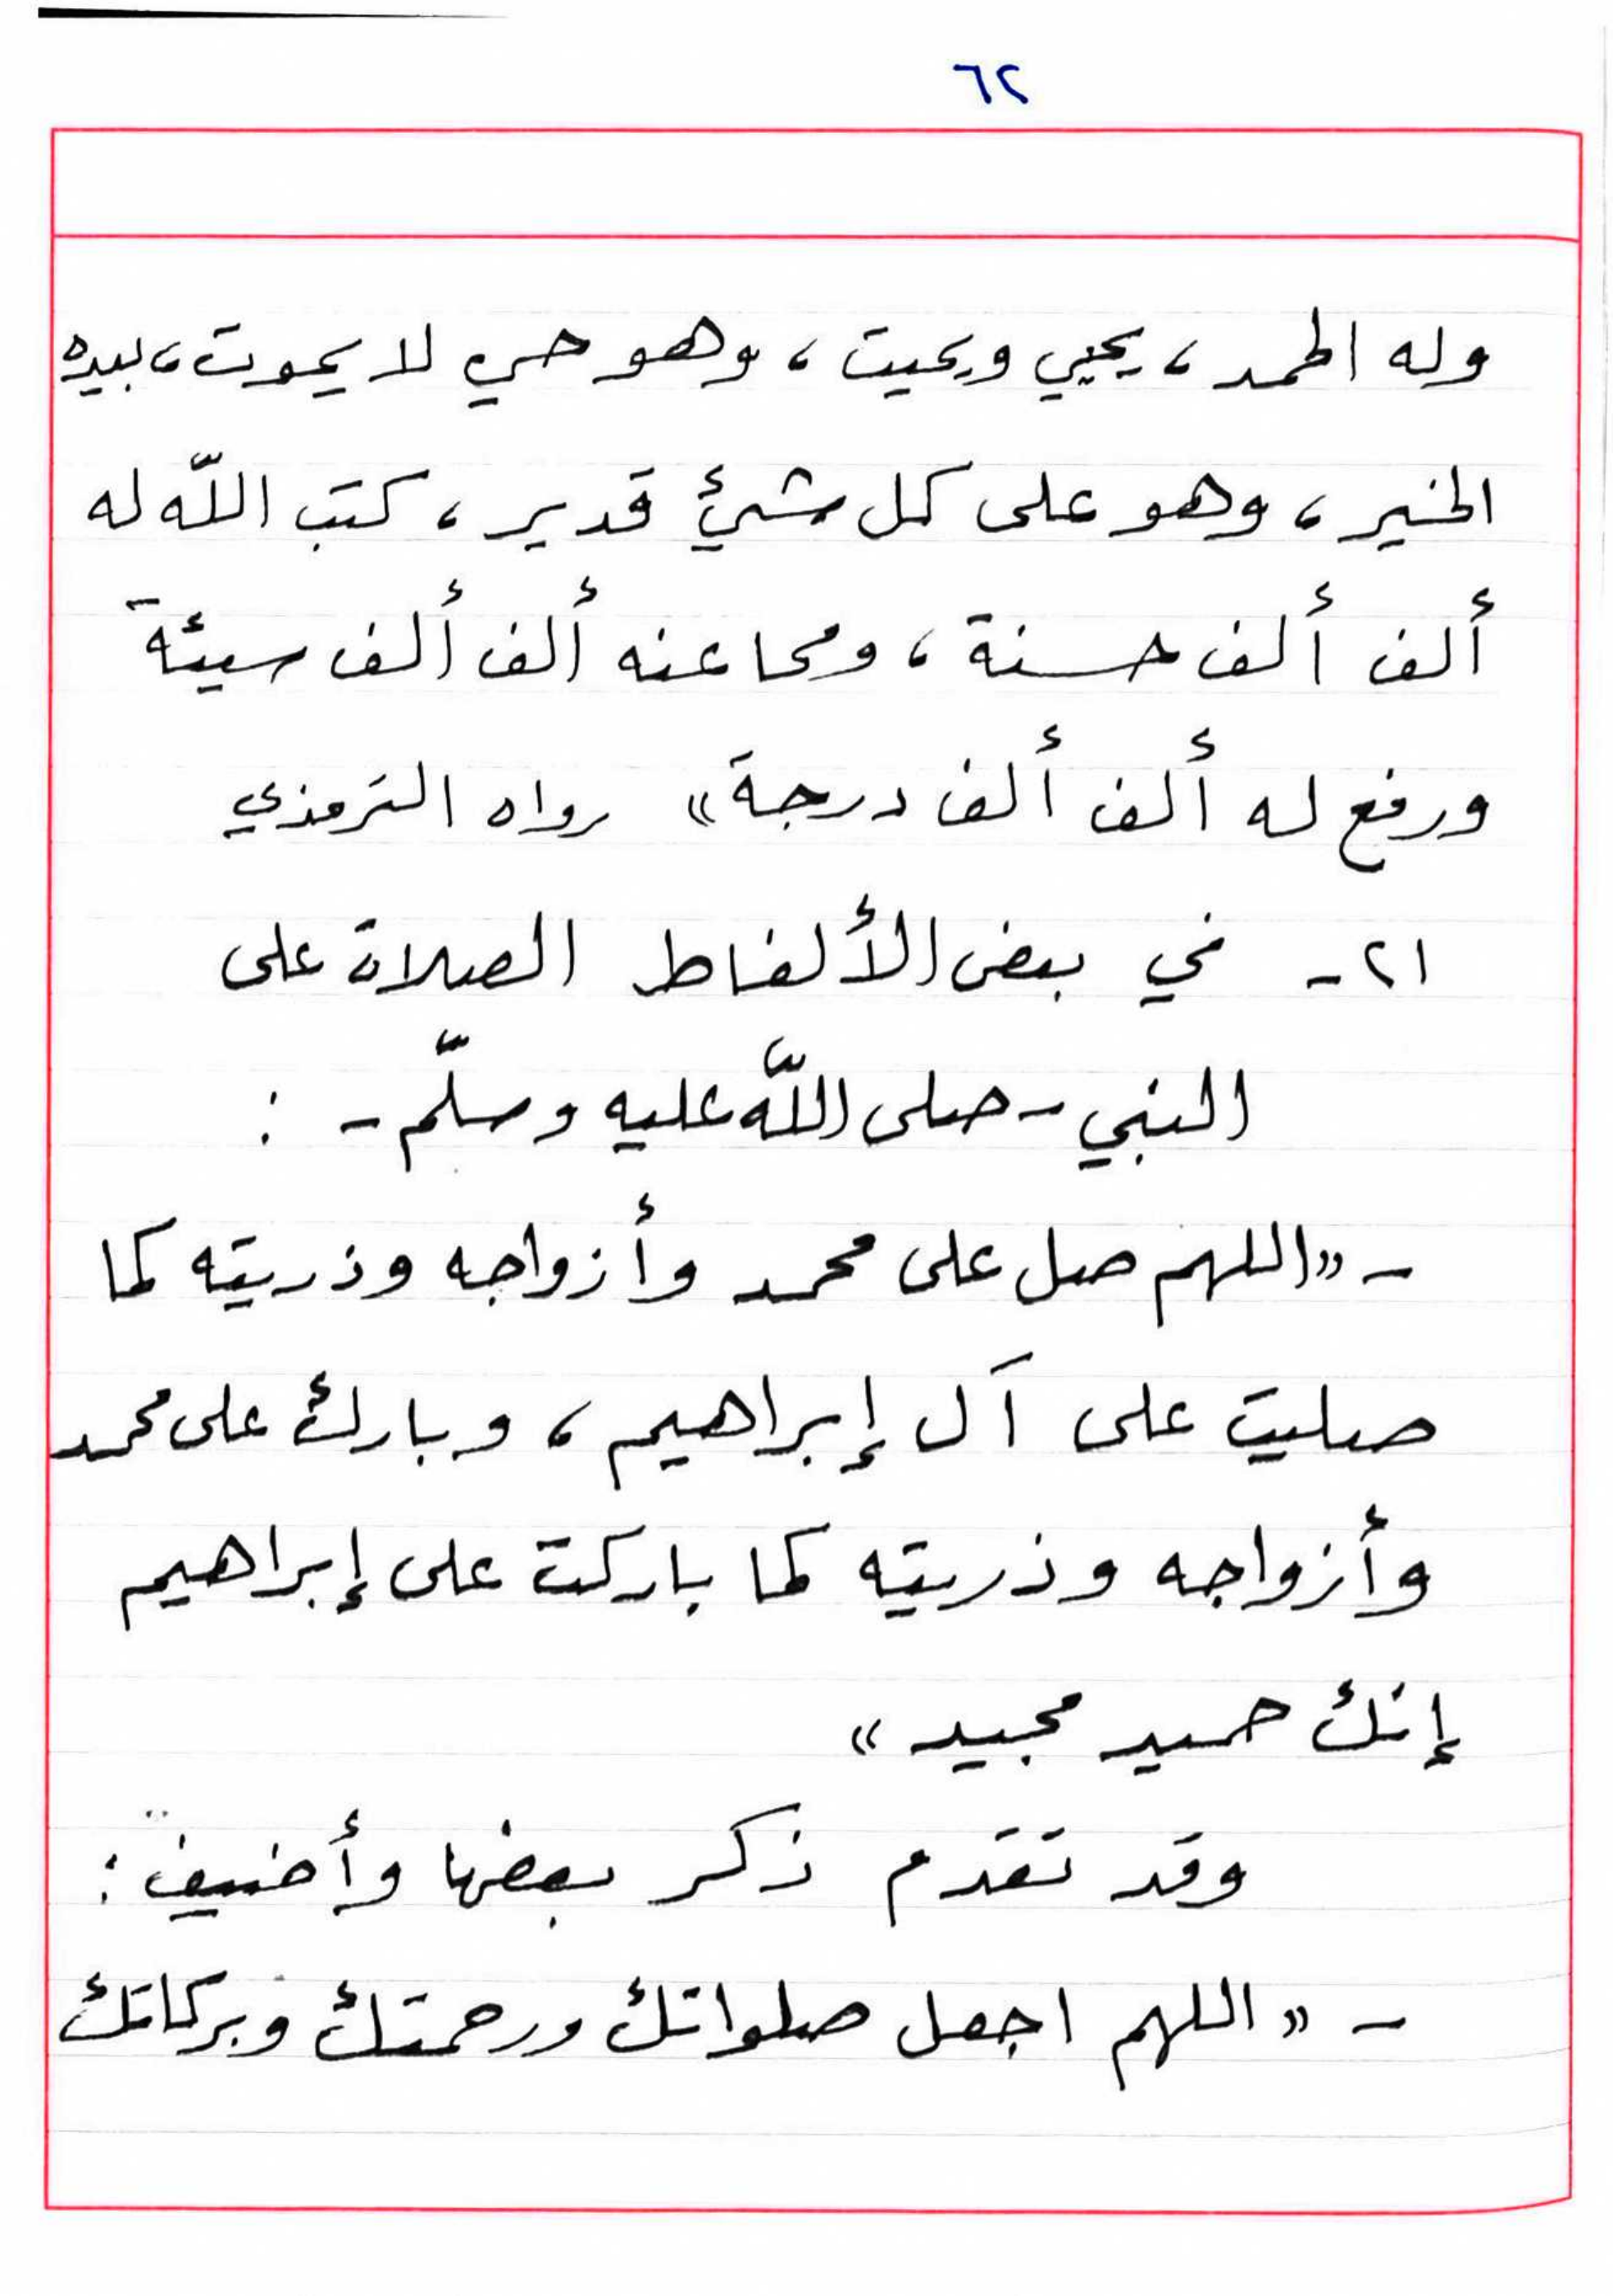 ٦٢
وله الحمد، يحيي ويميت، وهو حي لا يموت، بيده
الخير، وهو على كل شيئ قدير، كتب اللّه له
ألف ألف حسنة، ومحا عنه ألف ألف سيئة
ورفع له ألف ألف درجة» رواه الترمذي
٢١- في بعض الألفاط الصلاة على
النبي - صلى اللّه عليه وسلّم - :
- «اللهم صل على محمد وأزواجه وذريته كما
صليت على آل إبراهيم، وبارك على محمد
وأزواجه وذريته كما باركت على إبراهيم
إنك حميد مجيد»
وقد تقدم ذكر بعضها وأضيف:
- «اللهم اجعل صلواتك ورحمتك وبركاتك